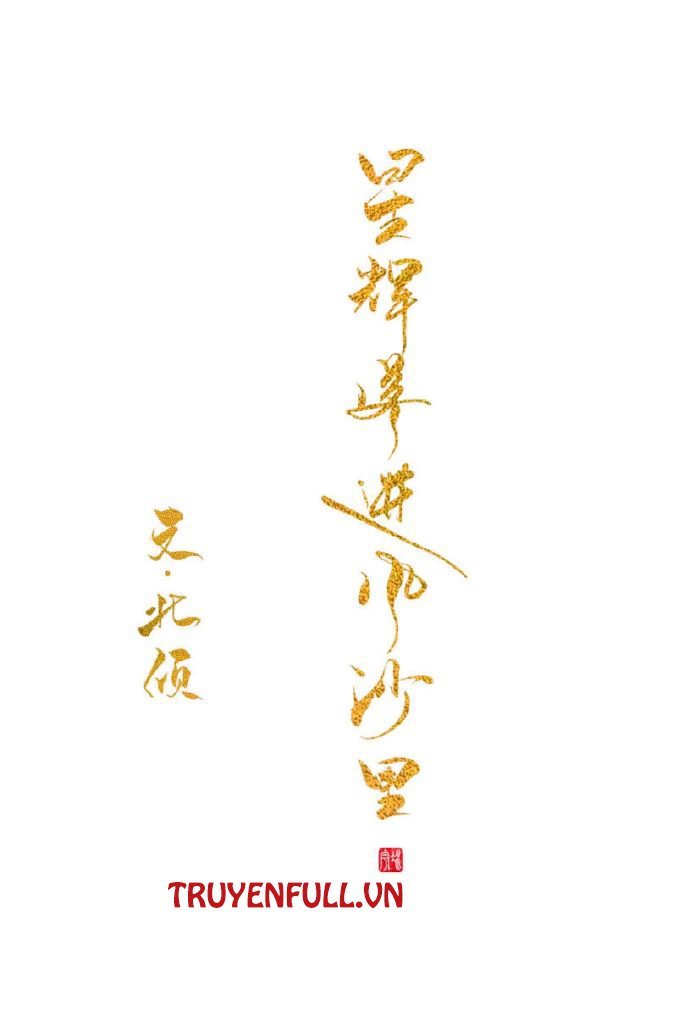 星辉落进风沙里
文·北倾
TRUYENFULL.VN